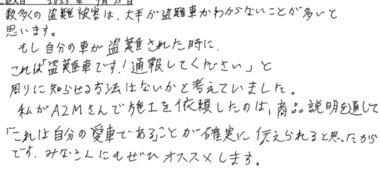 記入日 2023年9月25日
数多くの盗難被害は、大半が盗難車かわからないことが多いと
思います。
もし自分の車が盗難された時に、
これは「盗難車です！通報してください」と
周りに知らせる方法はないかと考えていました。
私がA2Mさんで施工を依頼したのは、商品説明を通じて
「これは自分の愛車であることが確実に伝えられると思ったから
です。みなさんにもぜひオススメします。